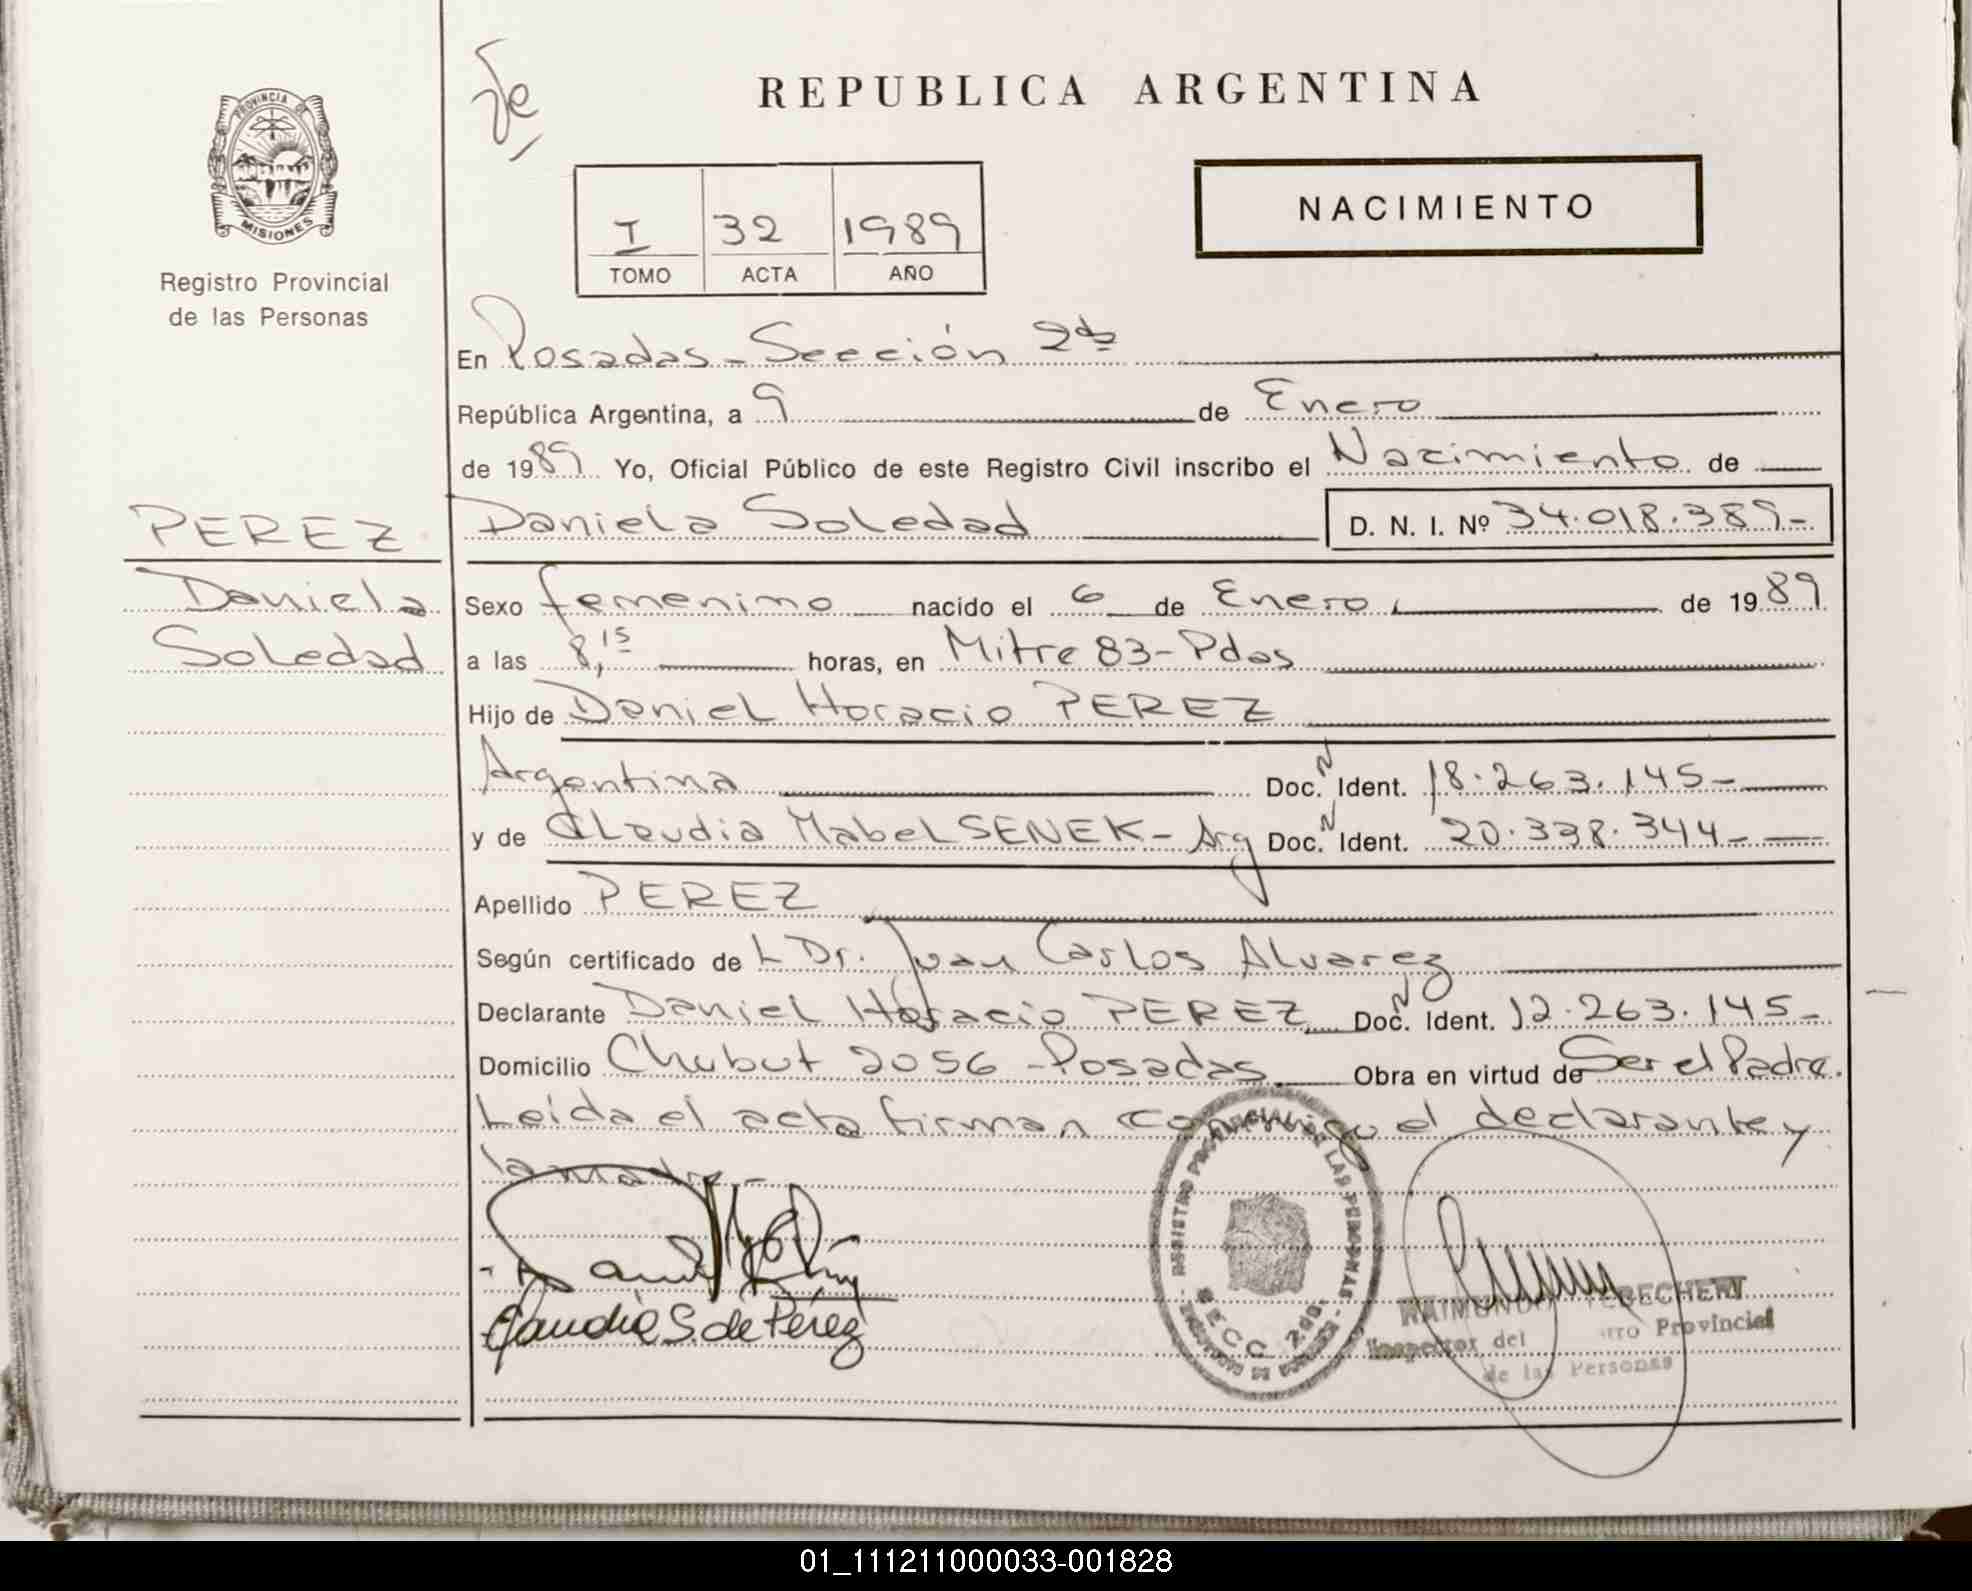 PROVINCIA DE
MISIONES
Registro Provincial
de las Personas
REPUBLICA ARGENTINA
NACIMIENTO
I 32 1989
TOMO ACTA AÑO
En Posadas - Sección 2da
República Argentina, a 9 de Enero
de 1989 Yo, Oficial Público de este Registro Civil inscribo el Nacimiento de
PEREZ Daniela Soledad D. N. I. Nº 34.018.389-
Daniela Sexo femenino nacido el 6 de Enero de 1989
Soledad a las 8,15 horas, en Mitre 83-Pdas
Hijo de Daniel Horacio PEREZ
Argentina Doc. N Ident. 18.263.145-
y de Claudia Mabel SENEK - Arg Doc. N Ident. 20.338.344-
Apellido PEREZ
Según certificado de L Dr. Juan Carlos Alvarez
Declarante Daniel Horacio PEREZ Doc. N Ident. 12.263.145-
Domicilio Chubut 2056 - Posadas Obra en virtud de Ser el Padre.
Leída el acta firman conmigo el declarante y
la madre-
Claudia S. de Pérez
REGISTRO PROVINCIAL DE LAS PERSONAS
SECC. 2da.
RAIMUNDO
Inspector del Provincial
de las Personas
01_111211000033-001828